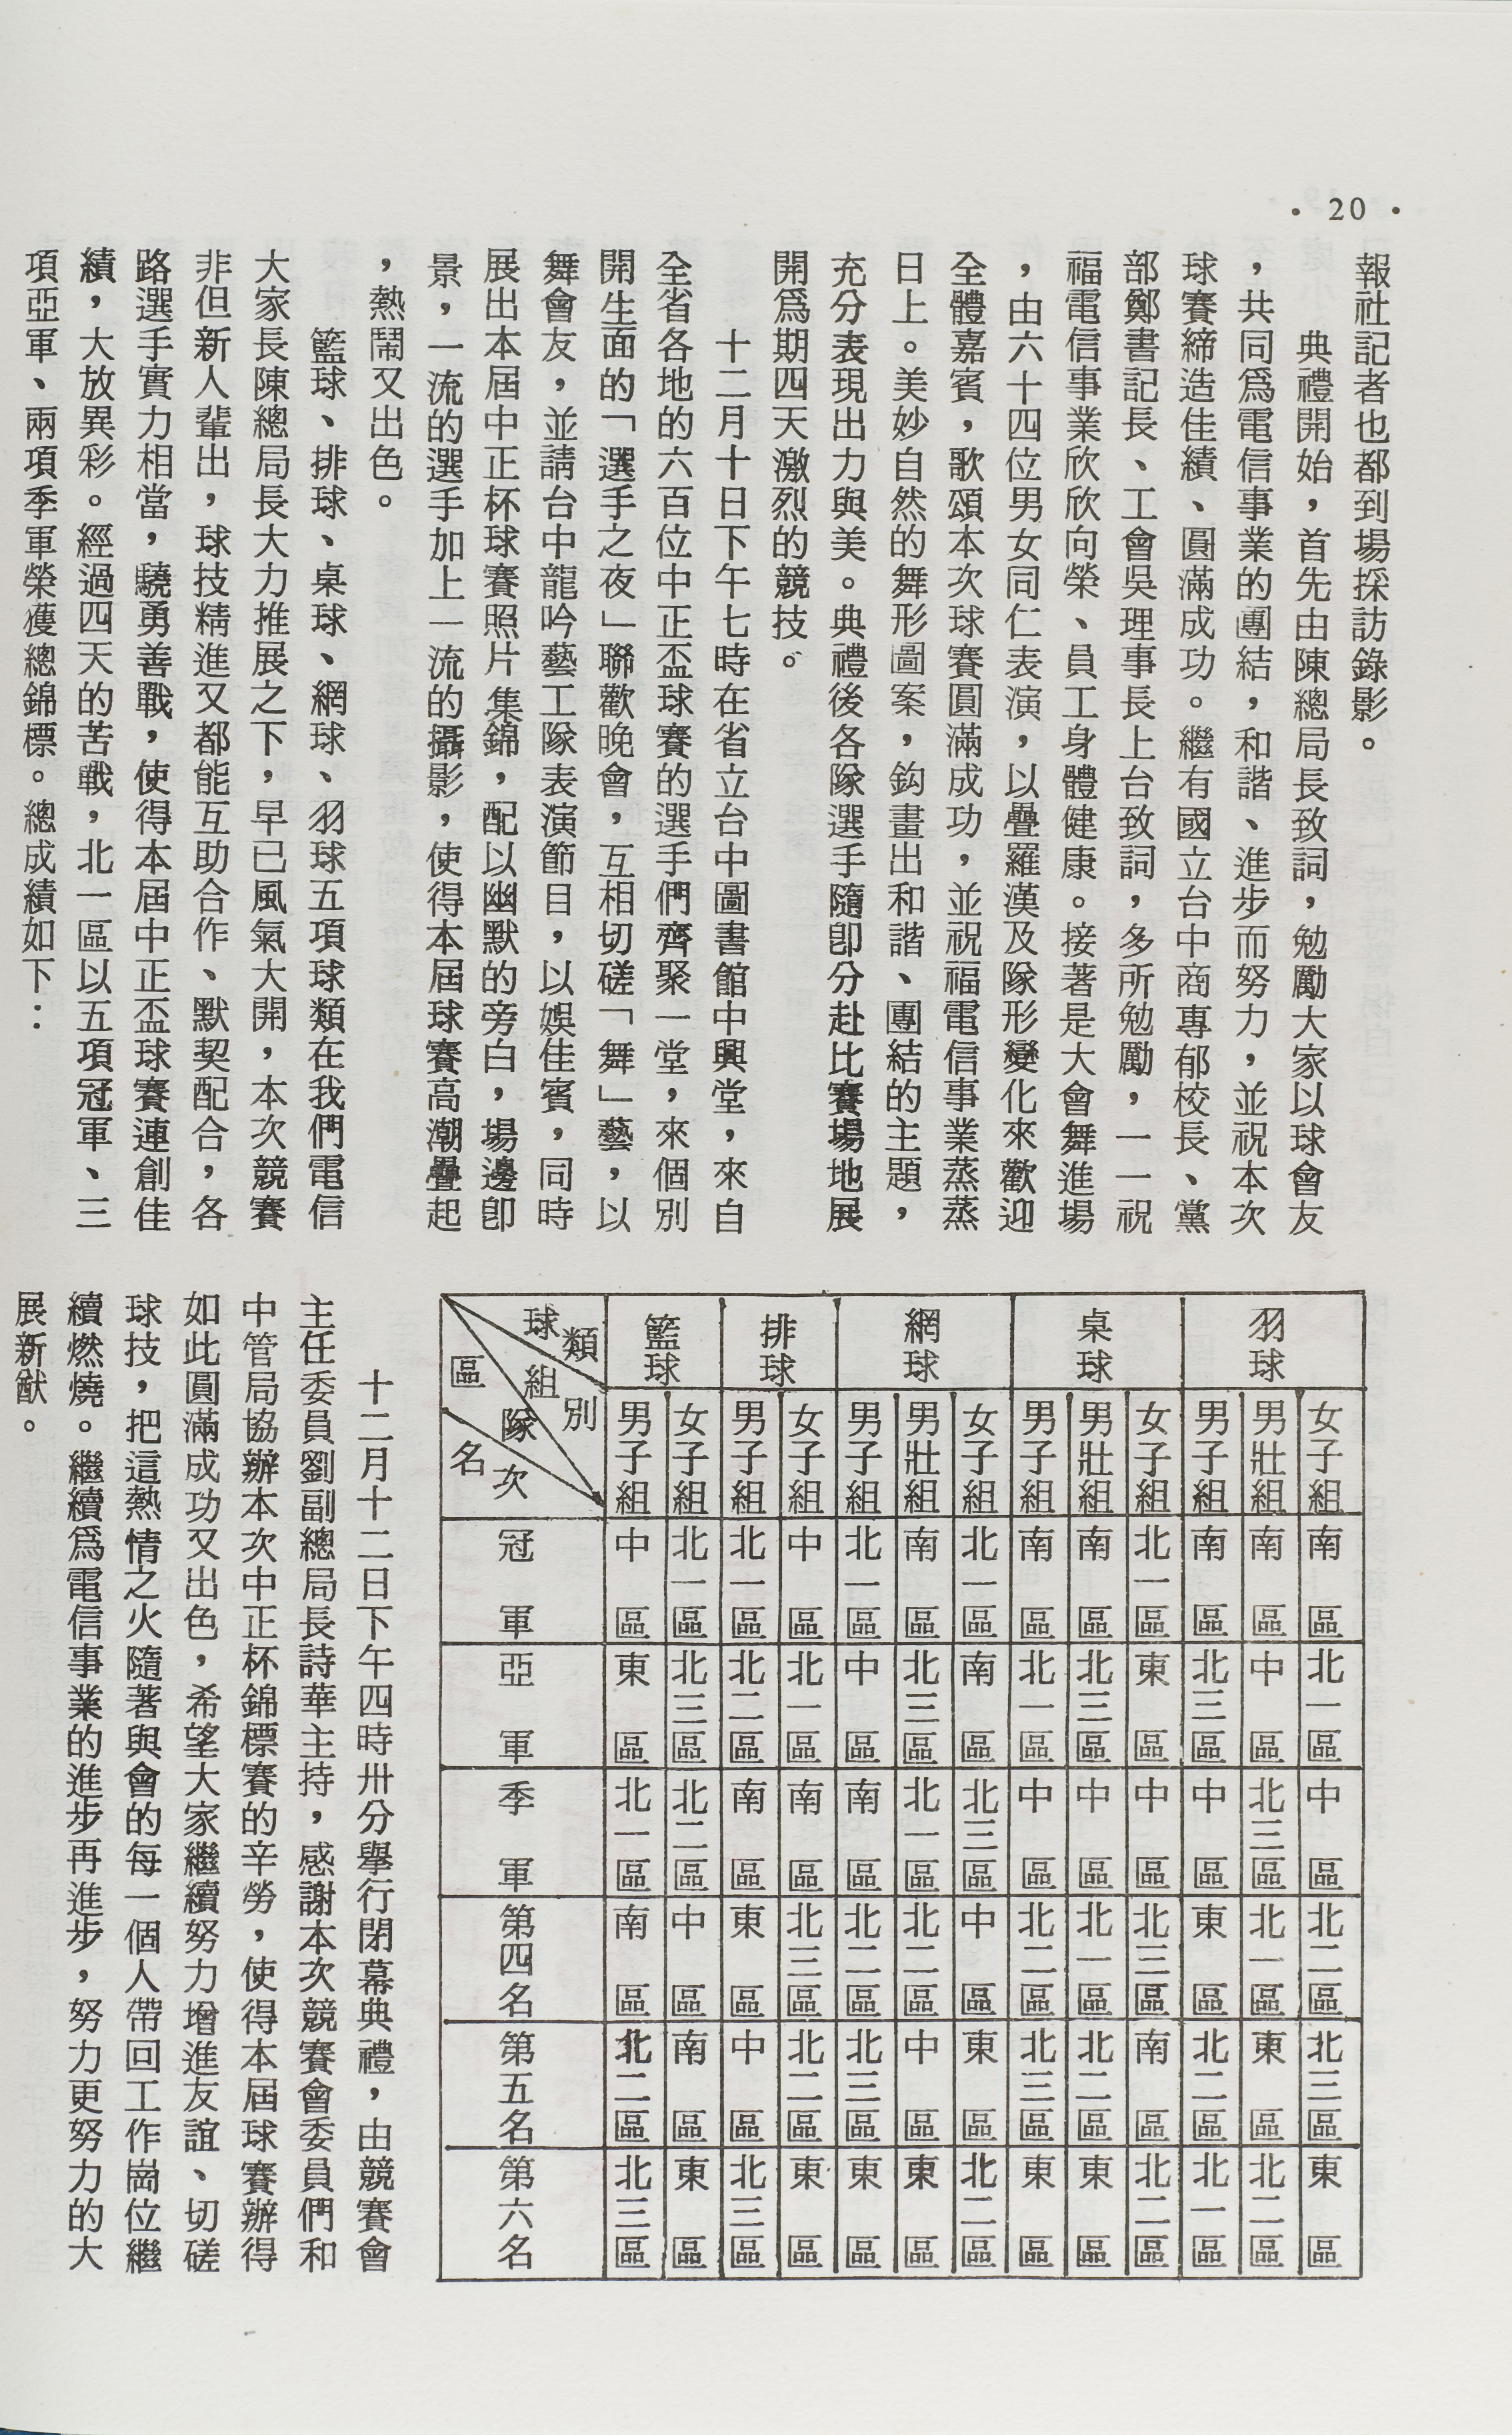 • 20 •
報社記者也都到場採訪錄影。
典禮開始，首先由陳總局長致詞，勉勵大家以球會友
，共同爲電信事業的團結，和諧、進步而努力，並祝本次
球賽締造佳績、圓滿成功。繼有國立台中商專郁校長、黨
部鄭書記長、工會吳理事長上台致詞，多所勉勵，一一祝
福電信事業欣欣向榮、員工身體健康。接著是大會舞進場
，由六十四位男女同仁表演，以疊羅漢及隊形變化來歡迎
全體嘉賓，歌頌本次球賽圓滿成功，並祝福電信事業蒸蒸
日上。美妙自然的舞形圖案，鈎畫出和諧、團結的主題，
充分表現出力與美。典禮後各隊選手隨卽分赴比賽場地展
開爲期四天激烈的競技。
十二月十日下午七時在省立台中圖書館中興堂，來自
全省各地的六百位中正盃球賽的選手們齊聚一堂，來個別
開生面的「選手之夜」聯歡晚會，互相切磋「舞」藝，以
舞會友，並請台中龍吟藝工隊表演節目，以娛佳賓，同時
展出本屆中正杯球賽照片集錦，配以幽默的旁白，場邊卽
景，一流的選手加上一流的攝影，使得本屆球賽高潮疊起
，熱鬧又出色。
籃球、排球、桌球、網球、羽球五項球類在我們電信
大家長陳總局長大力推展之下，早已風氣大開，本次競賽
非但新人輩出，球技精進又都能互助合作、默契配合，各
路選手實力相當，驍勇善戰，使得本屆中正盃球賽連創佳
績，大放異彩。經過四天的苦戰，北一區以五項冠軍、三
項亞軍、兩項季軍榮獲總錦標。總成績如下：
球類 組別 隊次 區名 冠軍 亞軍 季軍 第四名 第五名 第六名
籃球 男子組 中區 東區 北一區 南區 北二區 北三區
女子組 北一區 北三區 北二區 中區 南區 東區
排球 男子組 北一區 北二區 南區 東區 中區 北三區
女子組 中區 北一區 南區 北三區 北二區 東區
網球 男子組 北一區 中區 南區 北二區 北三區 東區
男壯組 南區 北三區 北一區 北二區 中區 東區
女子組 北一區 南區 北三區 中區 東區 北二區
桌球 男子組 南區 北一區 中區 北二區 北三區 東區
男壯組 南區 北三區 中區 北一區 北二區 東區
女子組 北一區 東區 中區 北三區 南區 北二區
羽球 男子組 南區 北三區 中區 東區 北二區 北一區
男壯組 南區 中區 北三區 北一區 東區 北二區
女子組 南區 北一區 中區 北二區 北三區 東區
十二月十二日下午四時卅分舉行閉幕典禮，由競賽會
主任委員劉副總局長詩華主持，感謝本次競賽會委員們和
中管局協辦本次中正杯錦標賽的辛勞，使得本屆球賽辦得
如此圓滿成功又出色，希望大家繼續努力增進友誼、切磋
球技，把這熱情之火隨著與會的每一個人帶回工作崗位繼
續燃燒。繼續爲電信事業的進步再進步，努力更努力的大
展新猷。